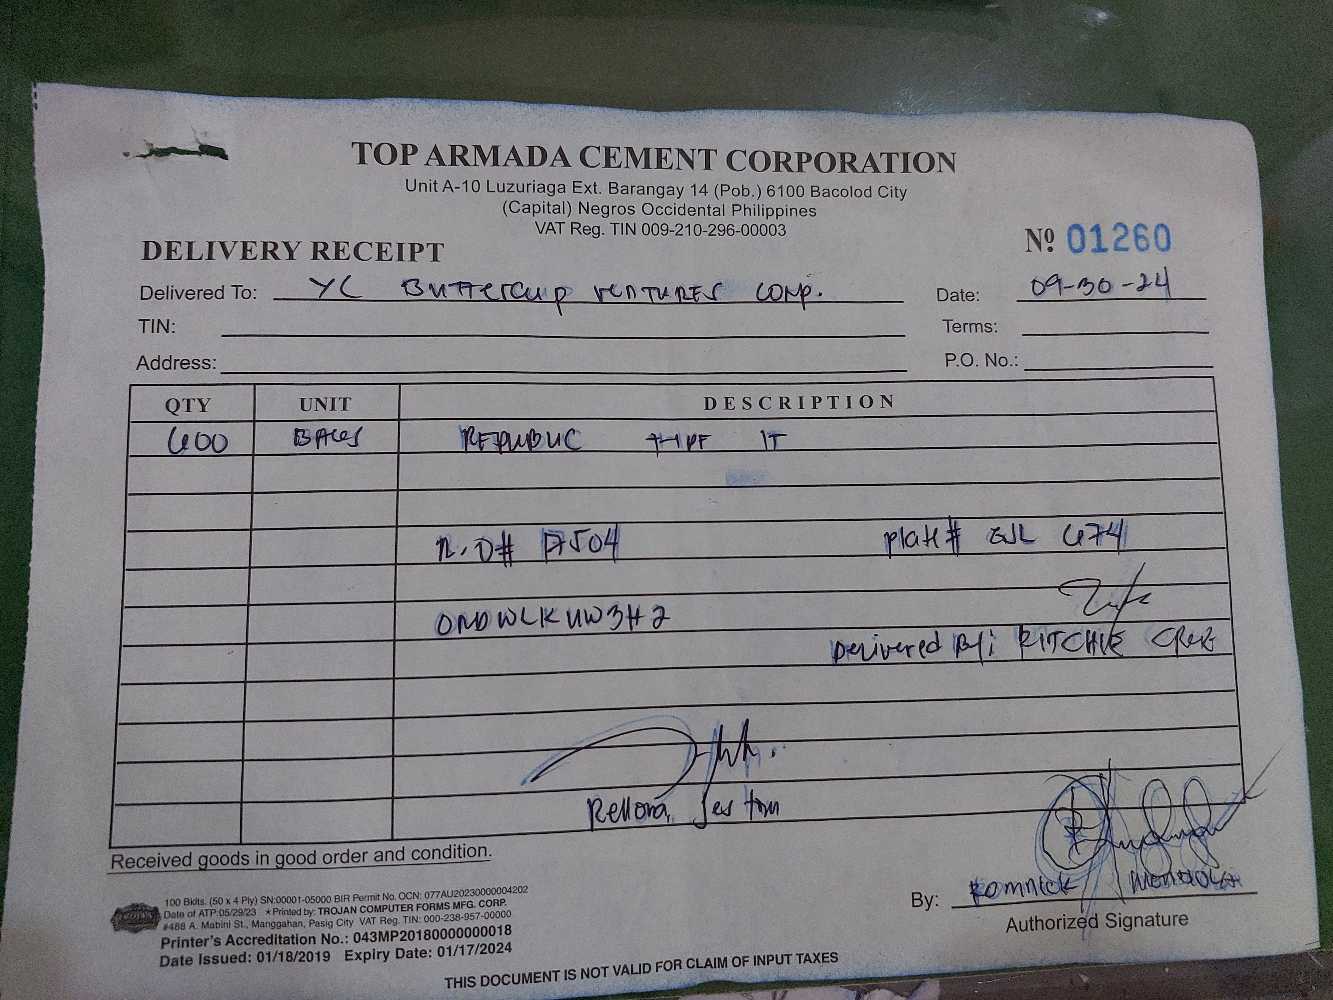 TOP ARMADA CEMENT CORPORATION
Unit A-10 Luzuriaga Ext. Barangay 14 (Pob.) 6100 Bacolod City
(Capital) Negros Occidental Philippines
VAT Reg. TIN 009-210-296-00003
DELIVERY RECEIPT
Nº 01260
Delivered To: YC Buttercup VENTURES CORP.
Date: 09-30-24
TIN:
Terms:
Address:
P.O. No.:
QTY UNIT DESCRIPTION
600 BAGS REPUBLIC TYPE IT
R.O# 17504 Plate# 674
Delivered By: RITCHIE
Rellora,
Received goods in good order and condition.
By: Romnick MENDIOLA
Authorized Signature
100 Bklts. (50 x 4 Ply) SN:00001-05000 BIR Permit No. OCN: 077AU20230000004202
Date of ATP:05/29/23 ★Printed by: TROJAN COMPUTER FORMS MFG. CORP.
#488 A. Mabini St., Manggahan, Pasig City VAT Reg. TIN: 000-238-957-00000
Printer's Accreditation No.: 043MP20180000000018
Date Issued: 01/18/2019 Expiry Date: 01/17/2024
THIS DOCUMENT IS NOT VALID FOR CLAIM OF INPUT TAXES